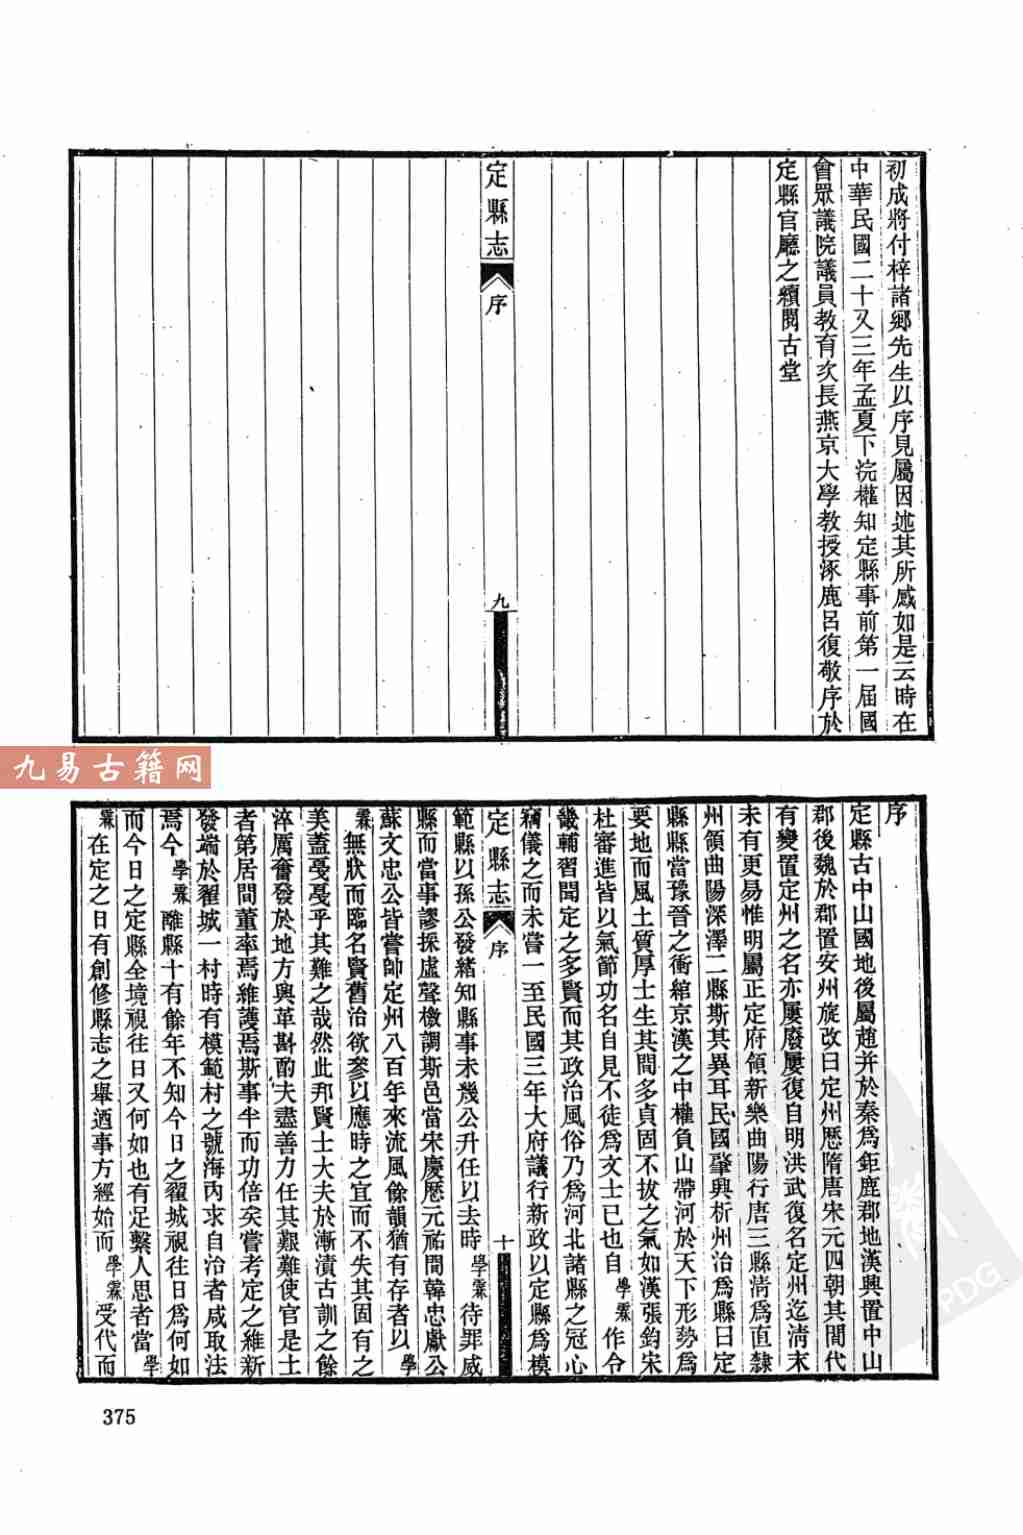 初成將付梓諸鄉先生以序見屬因述其所感如是云時在
中華民國二十又三年孟夏下浣權知定縣事前第一屆國
會眾議院議員教育次長燕京大學教授涿鹿呂復敬序於
定縣官廳之續閱古堂
定縣志
序
九
九易古籍网
序
定縣古中山國地後屬趙并於秦爲鉅鹿郡地漢興置中山
郡後魏於郡置安州旋改曰定州歷隋唐宋元四朝其間代
有變置定州之名亦屢廢屢復自明洪武復名定州迄清末
未有更易惟明屬正定府領新樂曲陽行唐三縣清爲直隸
州領曲陽深澤二縣斯其異耳民國肇興析州治爲縣曰定
縣縣當豫晉之衝綰京漢之中權負山帶河於天下形勢爲
要地而風土質厚士生其間多貞固不拔之氣如漢張鈞宋
杜審進皆以氣節功名自見不徒爲文士已也自學霖作令
畿輔習聞定之多賢而其政治風俗乃爲河北諸縣之冠心
竊儀之而未嘗一至民國三年大府議行新政以定縣爲模
定縣志
序
十
範縣以孫公發緒知縣事未幾公升任以去時學霖待罪威
縣而當事謬採虛聲檄調斯邑當宋慶歷元祐間韓忠獻公
蘇文忠公皆嘗帥定州八百年來流風餘韻猶有存者以學
霖無狀而臨名賢舊治欲參以應時之宜而不失其固有之
美蓋戛戛乎其難之哉然此邦賢士大夫於漸漬古訓之餘
淬厲奮發於地方興革斟酌夫盡善力任其艱難使官是土
者第居間董率焉維護焉斯事半而功倍矣嘗考定之維新
發端於翟城一村時有模範村之號海內求自治者咸取法
焉今學霖離縣十有餘年不知今日之翟城視往日爲何如
而今日之定縣全境視往日又何如也有足繫人思者當學
霖在定之日有創修縣志之舉迺事方經始而學霖受代而
375